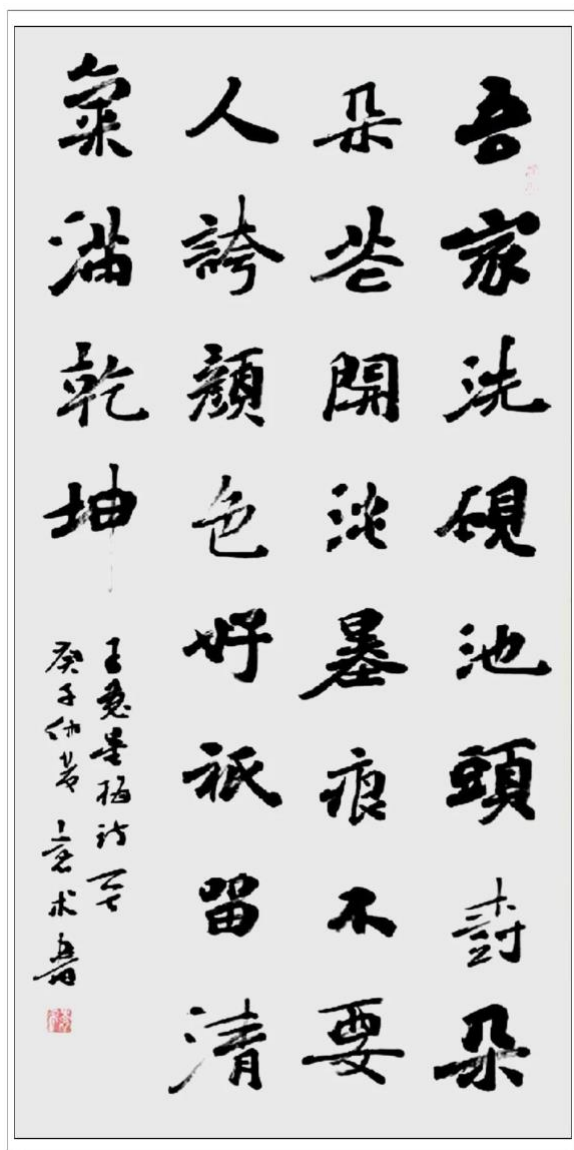 吾家洗硯池頭尌朵
朵花開淡墨痕不要
人誇顏色好祇留清
氣滿乾坤
王冕墨梅詩一首
子仲書